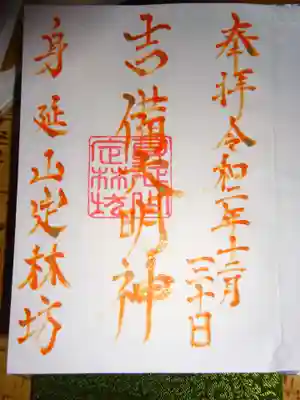 奉拝 令和二年十二月
三十日
吉備大明神
身延山定林坊